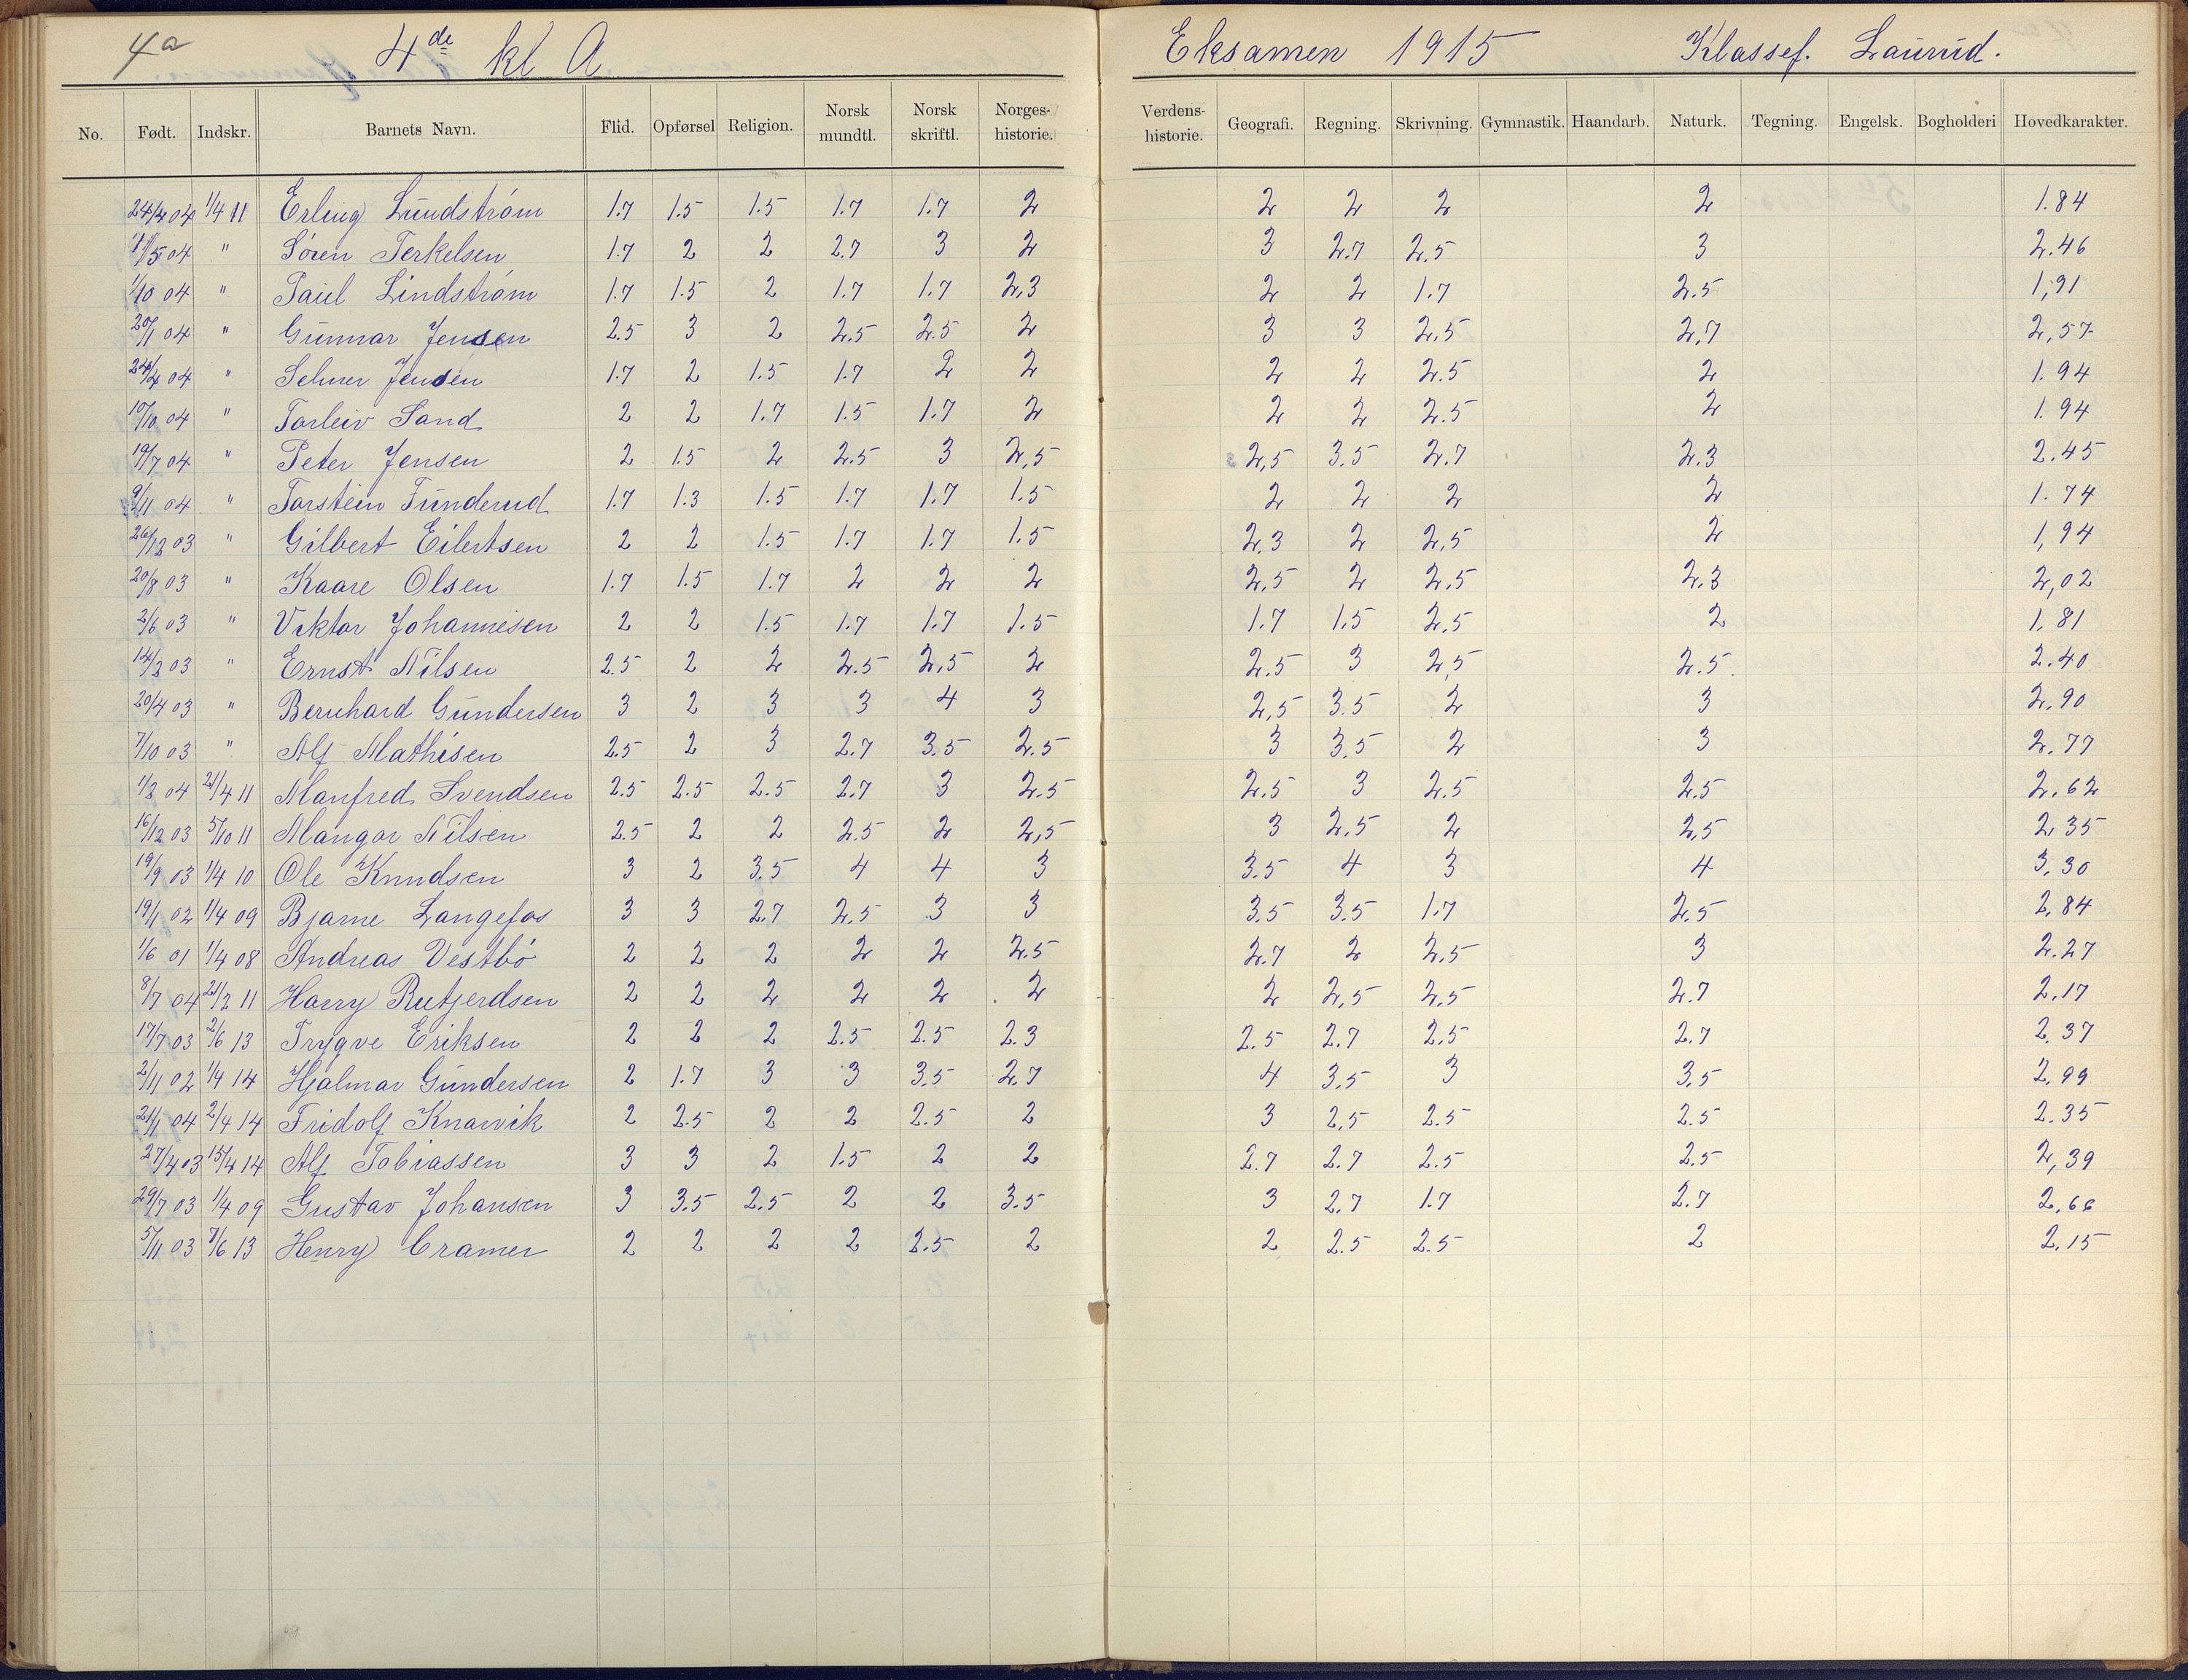 4a 4de kl A Eksamen 1915 Klassef. Laurud.
No. Født. Indskr. Barnets Navn. Flid. Opførsel Religion. Norsk mundtl. Norsk skriftl. Norges-historie. Verdens-historie. Geografi. Regning. Skrivning. Gymnastik. Haandarb. Naturk. Tegning. Engelsk. Bogholderi Hovedkarakter.
24/4 04 1/4 11 Erling Lundstrøm 1.7 1.5 1.5 1.7 1.7 2 2 2 2 2 1.84
11/5 04 " Søren Terkelsen 1.7 2 2 2.7 3 2 3 2.7 2.5 3 2.46
1/10 04 " Paul Lindstrøm 1.7 1.5 2 1.7 1.7 2,3 2 2 1.7 2.5 1,91
20/1 04 " Gunnar Jensen 2.5 3 2 2.5 2.5 2 3 3 2,5 2,7 2,57
24/4 04 " Selmer Jensen 1.7 2 1.5 1.7 2 2 2 2 2.5 2 1.94
10/10 04 " Torleiv Sand 2 2 1.7 1.5 1.7 2 2 2 2.5 2 1.94
19/7 04 " Peter Jensen 2 1.5 2 2.5 3 2,5 2,5 3.5 2.7 2.3 2.45
9/11 04 " Torstein Funderud 1.7 1.3 1.5 1.7 1.7 1.5 2 2 2 2 1.74
26/12 03 " Gilbert Eilertsen 2 2 1.5 1.7 1.7 1.5 2.3 2 2,5 2 1,94
20/8 03 " Kaare Olsen 1.7 1.5 1.7 2 2 2 2,5 2 2.5 2.3 2,02
2/6 03 " Viktor Johannesen 2 2 1.5 1.7 1.7 1.5 1.7 1.5 2.5 2 1,81
14/2 03 " Ernst Nilsen 2.5 2 2 2.5 2,5 2 2.5 3 2,5 2.5 2.40
20/4 03 " Bernhard Gundersen 3 2 3 3 4 3 2,5 3.5 2 3 2.90
7/10 03 " Alf Mathisen 2.5 2 3 2.7 3.5 2.5 3 3.5 2 3 2.77
1/3 04 21/4 11 Manfred Svendsen 2.5 2.5 2.5 2.7 3 2.5 2.5 3 2.5 2.5 2.62
16/12 03 5/10 11 Mangor Nilsen 2.5 2 2 2.5 2 2,5 3 2,5 2 2,5 2,35
19/9 03 1/4 10 Ole Knudsen 3 2 3.5 4 4 3 3.5 4 3 4 3,30
19/1 02 1/4 09 Bjarne Langefos 3 3 2.7 2.5 3 3 3.5 3.5 1.7 2.5 2,84
1/6 01 1/4 08 Andreas Vestbø 2 2 2 2 2 2.5 2.7 2 2,5 3 2.27
8/7 04 21/2 11 Harry Rutjerdsen 2 2 2 2 2 2 2 2,5 2,5 2.7 2,17
17/7 03 2/6 13 Trygve Eriksen 2 2 2 2.5 2.5 2.3 2.5 2.7 2.5 2.7 2,37
2/11 02 1/4 14 Hjalmar Gundersen 2 1.7 3 3 3.5 2.7 4 3.5 3 3.5 2,99
21/1 04 2/4 14 Fridolf Knarvik 2 2.5 2 2 2.5 2 3 2,5 2.5 2.5 2.35
27/4 03 15/4 14 Alf Tobiassen 3 3 2 1.5 2 2 2.7 2.7 2.5 2.5 2,39
29/7 03 1/4 09 Gustav Johansen 3 3.5 2.5 2 2 3.5 3 2.7 1.7 2.7 2,66
5/11 03 7/6 13 Henry Cramer 2 2 2 2 2.5 2 2 2.5 2.5 2 2,15